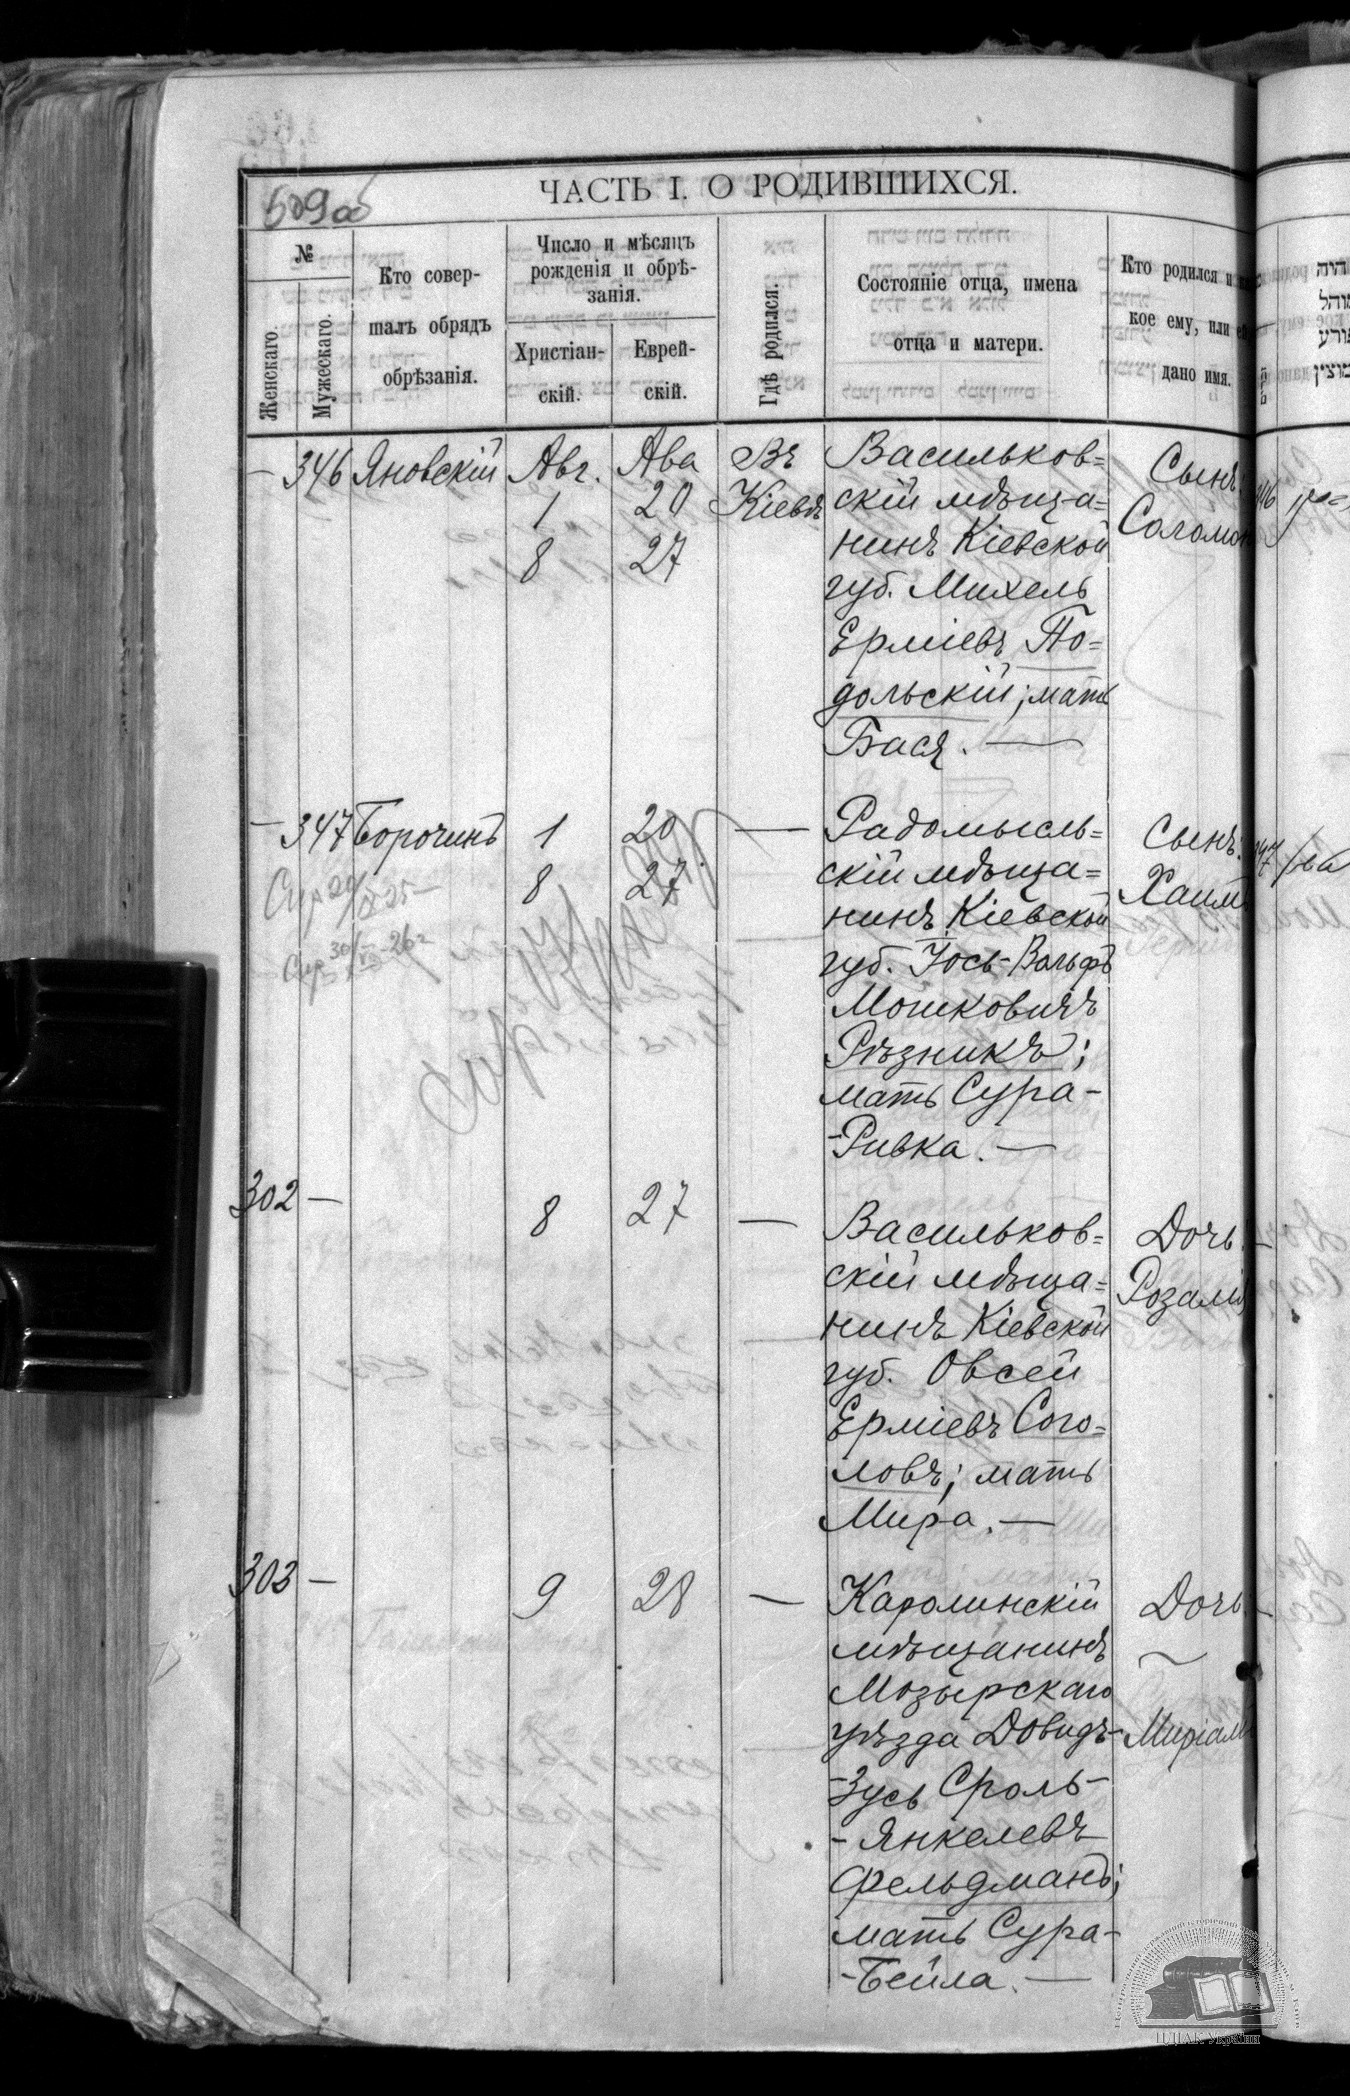 509об
ЧАСТЬ I. О РОДИВШИХСЯ.
№
Женскаго.
Мужескаго.
Кто совер-
шалъ обрядъ
обрѣзанія.
Число и мѣсяцъ
рожденія и обрѣ-
занія.
Христіан-
скій.
Еврей-
скій.
Гдѣ родился.
Состояніе отца, имена
отца и матери.
Кто родился и
кое ему, или
дано имя.
— 346 Яновскій Авг. Ава Въ Васильков=
1 20 Кіевѣ скій мѣща=
8 27 нинъ Кіевской
губ. Михель
Ерміевъ По=
дольскій; мать
Бася. —
Сынъ.
Соломон
— 347 Борочинъ 1 20 — Радомысль=
8 27 скій мѣща=
нинъ Кіевской
губ. Іось-Вольфъ
Мошковичъ
Рѣзникъ;
мать Сура-
-Ривка. —
Сынъ.
Хаимъ
302 — 8 27 — Васильков=
скій мѣща=
нинъ Кіевской
губ. Овсей
Ерміевъ Сого=
ловъ; мать
Мира. —
Дочь
Розалія
303 — 9 28 — Каролинскій
мѣщанинъ
Мозырскаго
уѣзда Довидъ-
-Зусь Сроль-
-Янкелевъ
Фельдманъ;
мать Сура-
-Бейла. —
Дочь
Миріамъ
ЦДІАК України